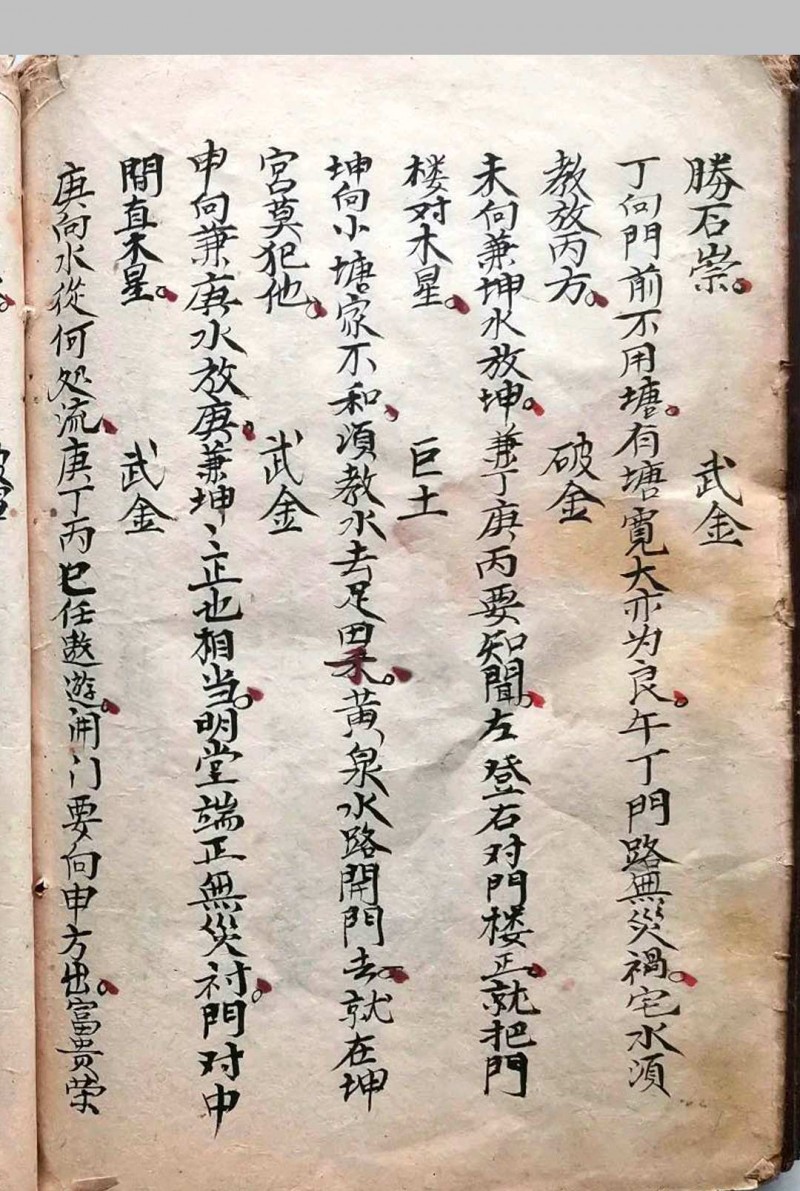 勝石崇。 武金
丁向門前不用塘。有塘寬大亦为良。午丁門路無災禍。宅水須
教放丙方。 破金
未向兼坤水放坤。兼丁庚丙要知聞。左登右对門楼正。就把門
楼对木星。 巨土
坤向小塘家不和。須教水去足田禾。黄泉水路開門去。就在坤
宮莫犯他。 武金
申向兼庚水放庚。兼坤〻正也相当。明堂端正無災。門对申
間直木星。 武金
庚向水從何処流。庚丁丙巳任遨遊。開门要向申方出。富貴荣